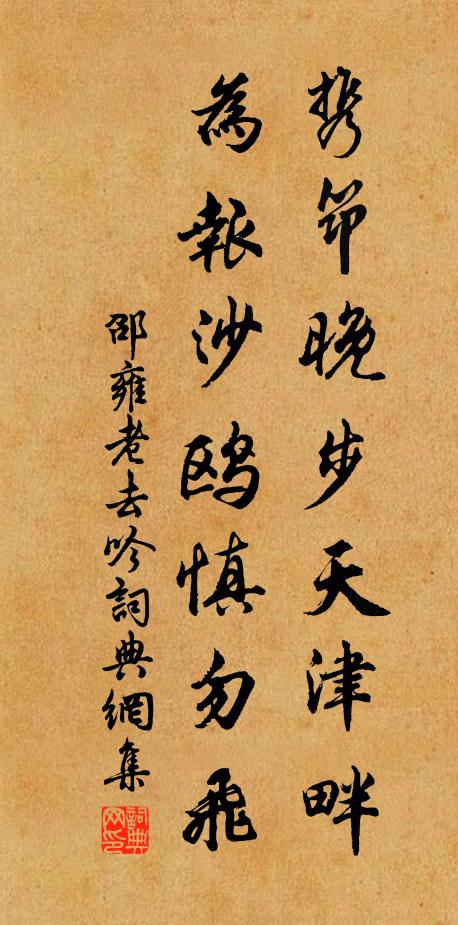 携筇晚步天津畔
為報沙鷗慎勿飛
邵雍老去吟詞典網集
詞典網印